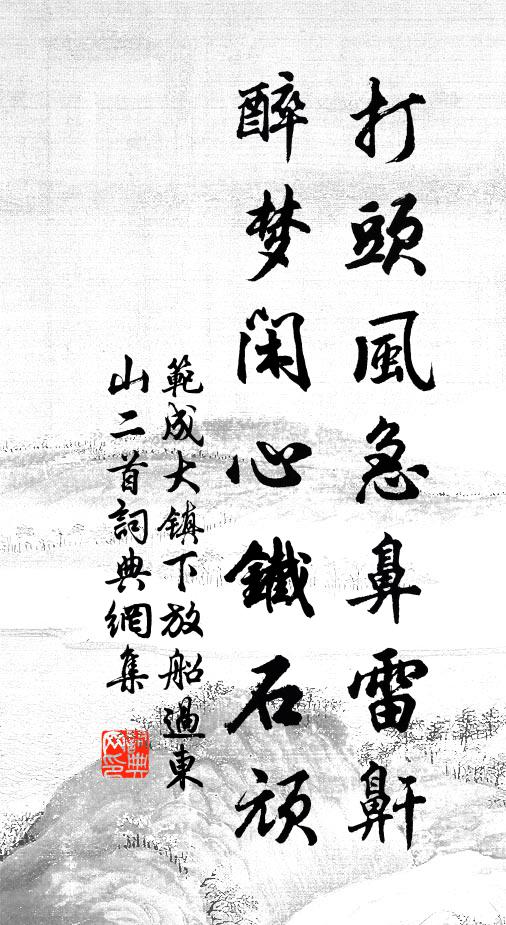 打頭風急鼻雷鼾
醉梦闲心鐵石頑
範成大鎮下放船過東
山二首詞典網集